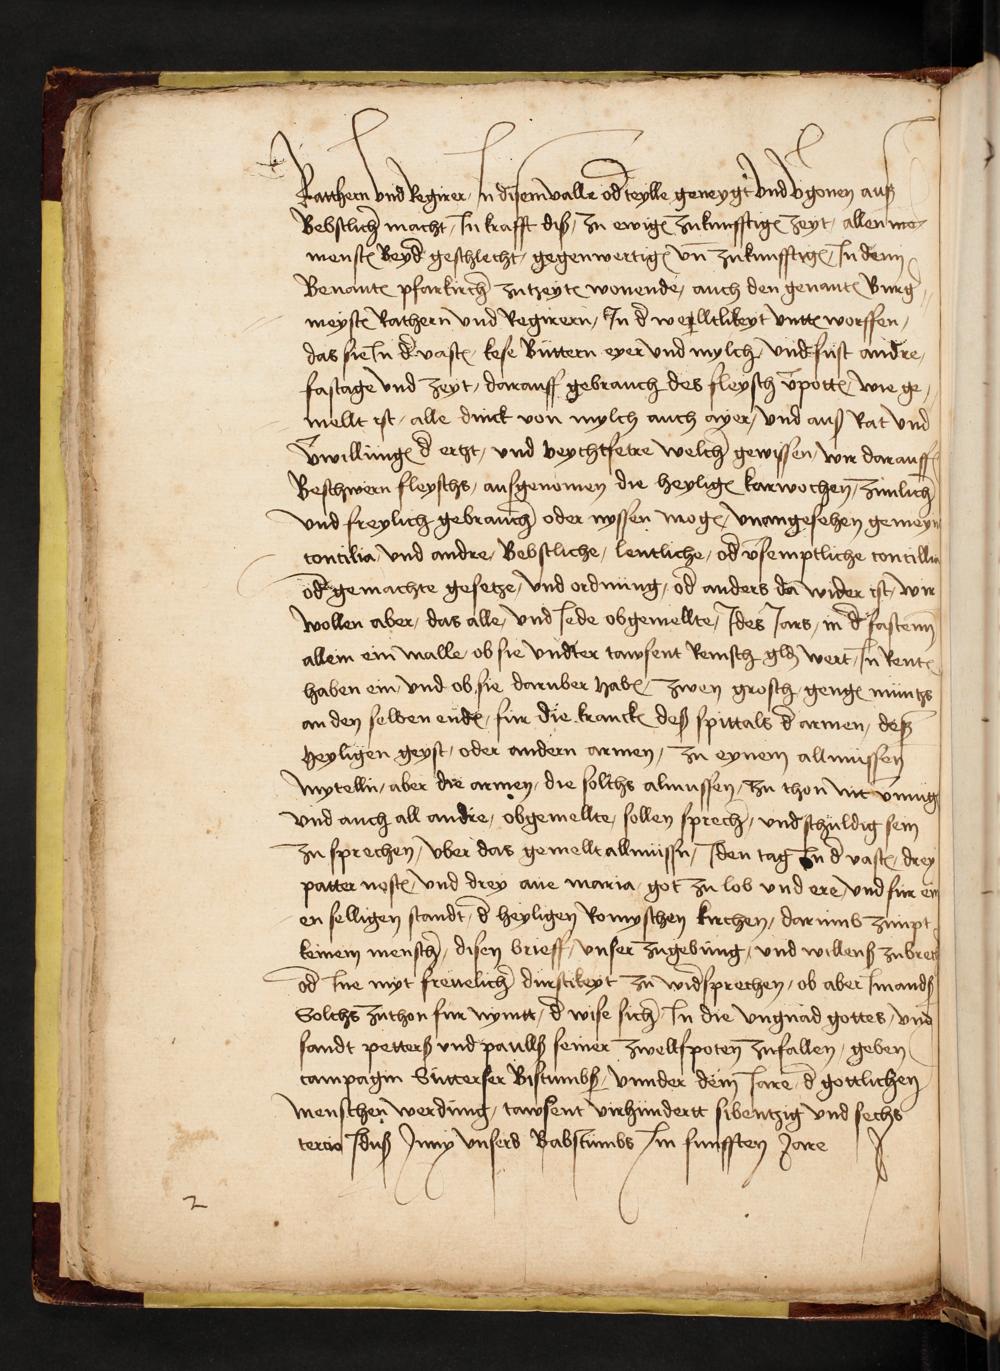 Ratthern vnd Regirer, In disem valle od̄ teylle geneygt vnd v̄gonen auß
Bebstlich̄ macht, In krafft diß, zu ewigē zukunfftigē zeyt, allen
menschē Beyd̄ geschlecht, gegenwertigē vn̄ zukunfftigē, In dem
Benantē pfarkirch̄ zutzeytē wonende, auch den genantē Burḡ
meystē Rathern vnd Regirern, In d̄ weylltlikeyt vnttēworffen,
das sie In d̄ vastē, kese Buttern eyer vnd mylch, vnd sust andre,
fastage vnd zeyt, darauff gebrauch des fleysch v̄pottē, wie ge,
mellt ist, alle dinck von mylch auch ayer, vnd auß Rat vnd
v̄willungē d̄ ertzt, vnd beychtfetre welch̄ gewissen, wir darauff
Beschwern fleyschs, ausgenomen die heyligē karwochen, zimlich̄
vnd freylich gebrauch̄ oder nyssen mogē, vnangesehen gemeyn
concilia, vnd andre, Bebstliche, lentliche, od̄ v̄semptliche concillia
od̄ gemachte gesetze, vnd ordnung, od̄ anders da wider ist, wir
wollen aber, das alle, vnd Iede obgemellte, Ides Iars, in d̄ fastenn
allein ein malle, ob sie vndter tawsent Reinsch gld̄ wert, In Rentē
haben ein, vnd ob sie daruber habē, zwen grosch, gengē müntzs
an den selben endē, für die kranckē deß spittals d̄ armen, deß
heyligen geyst, oder andern armen, zu eynem allmussen
mytelln, aber die armen, die solchs almussen, zu thon nit v̄mug
vnd auch all andre, obgemellte, sollen sprech̄, vnd schuldig sein
zu sprechen, vber das gemellt allmüssn, Iden tag In d̄ vastē, drey
patter nostē, vnd drey aue maria, got zu lob vnd ere, vnd für ein
en selligen standt, d̄ heyligen Romyschen kirchen, darumb zimpt
keinem mensch̄, disen brieff, vnser zugebung, vnd willenß zubrech
od̄ Ine myt freuelich̄ durstikeyt zu wid̄sprechen, ob aber Imandß
Solchs zuthon fur nymtt, d̄ wise sich̄ In die vngnad gottes, vnd
sandt petterß vnd paullß seiner zwelfspoten zufallen, geben
campagin Sutterser Bistumbß, vnnder dem Iare, d̄ gottlichen
menschen werdung, tawsent virhundertt sibentzig vnd sechs
tercio Iduß Juny vnsers Babstumbs Im funfften Jare
2